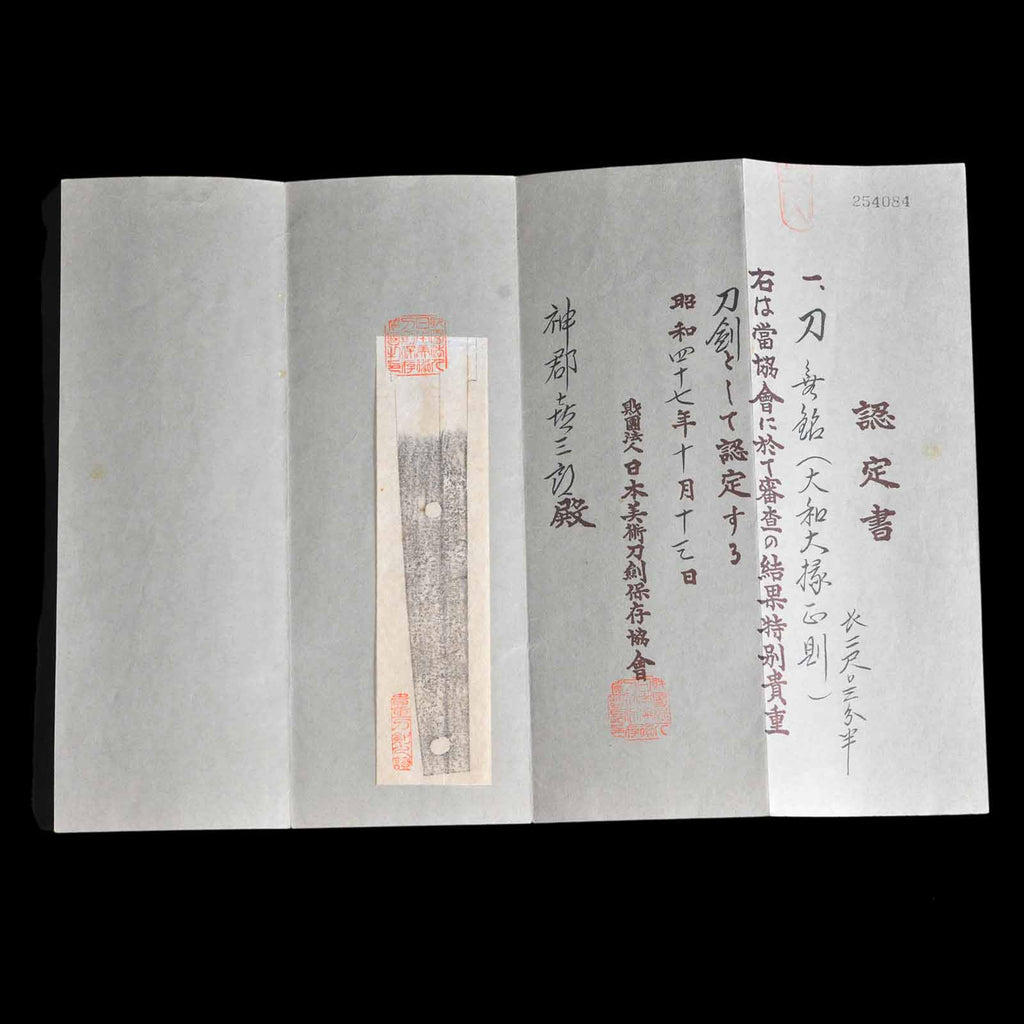 254084
認定書
一、刀 無銘（大和大掾正則）
長二尺〇三分半
右は當協會に於て審査の結果特別貴重
刀劍として認定する
昭和四十七年十月十三日
財團法人日本美術刀劍保存協會
神郡喜三郎殿